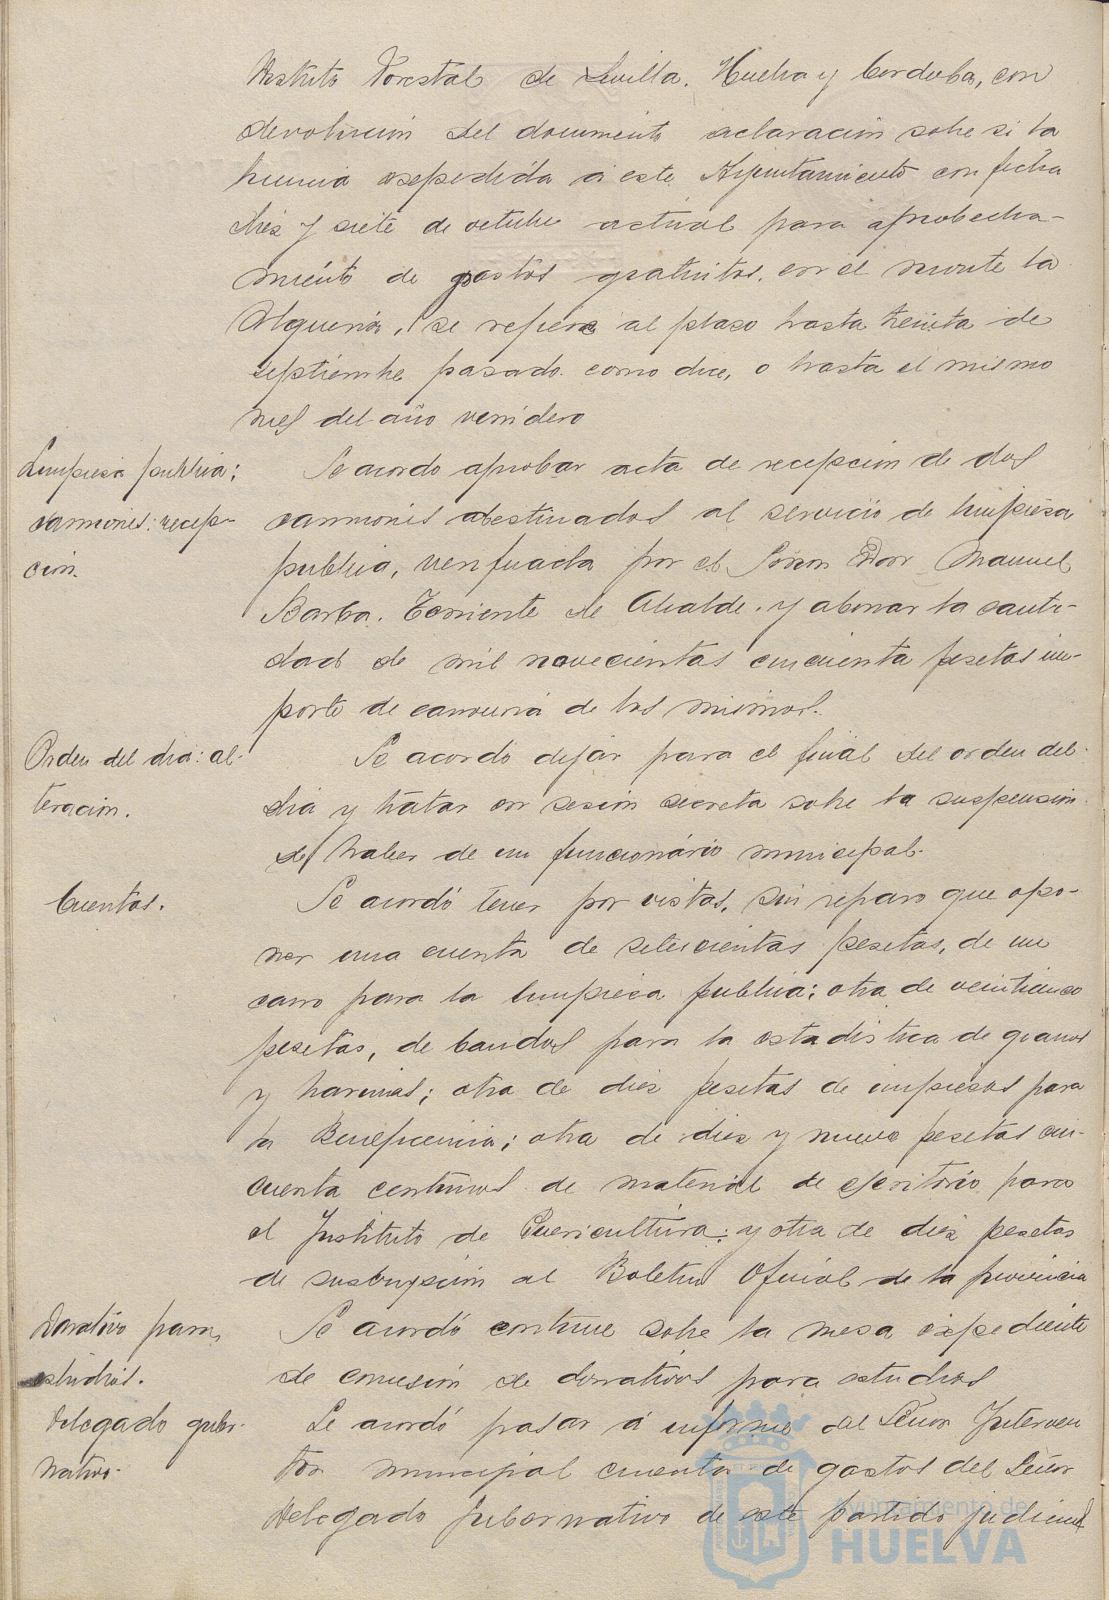 Distrito Forestal de Sevilla, Huelva y Cordoba, con
devolucion del documento aclaracion sobre si la
licencia expedida a este Ayuntamiento con fecha
diez y siete de octubre actual para aprobecha-
miento de pastos gratuitos, en el monte la
Alqueria, se refiere al plazo hasta treinta de
septiembre pasado como dice, o hasta el mismo
mes del año venidero
Limpieza publica:
camiones: recep-
cion.
Se acordo aprobar acta de recepcion de dos
camiones destinados al servicio de limpieza
publica, verificada por el Señor Don Manuel
Barba, Teniente de Alcalde, y abonar la canti-
dad de mil novecientas cincuenta pesetas im-
porte de carroceria de los mismos.
Orden del dia: al-
teracion.
Se acordó dejar para el final del orden del
dia y tratar en sesion secreta sobre la suspension
de haber de un funcionario municipal.
Cuentas.
Se acordó tener por vistas, sin reparo que opo-
ner una cuenta de setecientas pesetas, de un
carro para la limpieza publica; otra de veinticinco
pesetas, de bandos para la estadistica de granos
y harinas; otra de diez pesetas de impresos para
la Beneficencia; otra de diez y nueve pesetas cin-
cuenta centimos de material de escritorio para
el Instituto de Puericultura; y otra de diez pesetas
de suscripcion al Boletin Oficial de la provincia
Donativo para
estudios.
Se acordó continue sobre la mesa expediente
de concesion de donativos para estudios
Delegado guber-
nativo.
Se acordó pasar á informe del Señor Interven
tor municipal cuenta de gastos del Señor
Delegado Gubernativo de este partido judicial
Ayuntamiento de
HUELVA